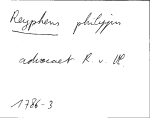 Reyphens philippin
advocaet R. v. Vl.
1786-3